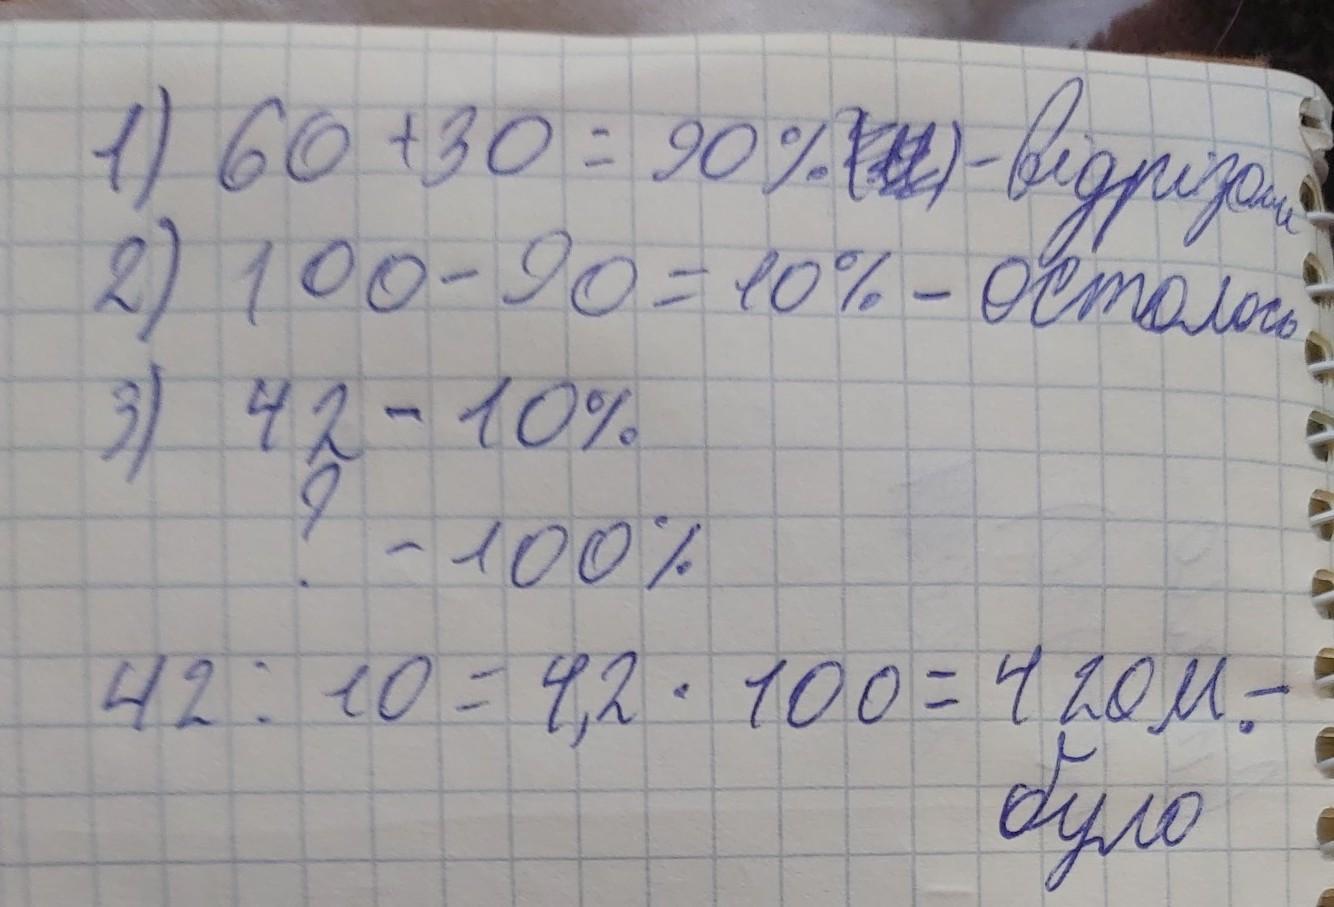 1) 60 + 30 = 90% - відрізали
2) 100 - 90 = 10% - осталось
3) 42 - 10%
? - 100%
42 : 10 = 4,2 · 100 = 420 м. -
було